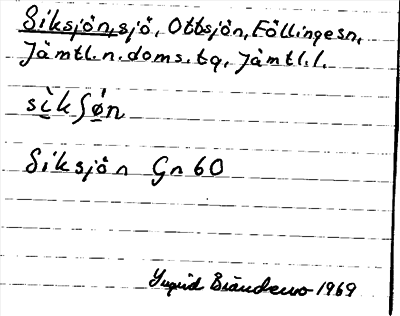 Siksjön, sjö, Ottsjön, Föllinge sn,
Jämtl. n. doms. tg, Jämtl. l.
sìkʃøn
Siksjön Gn 60
Ingrid 1969